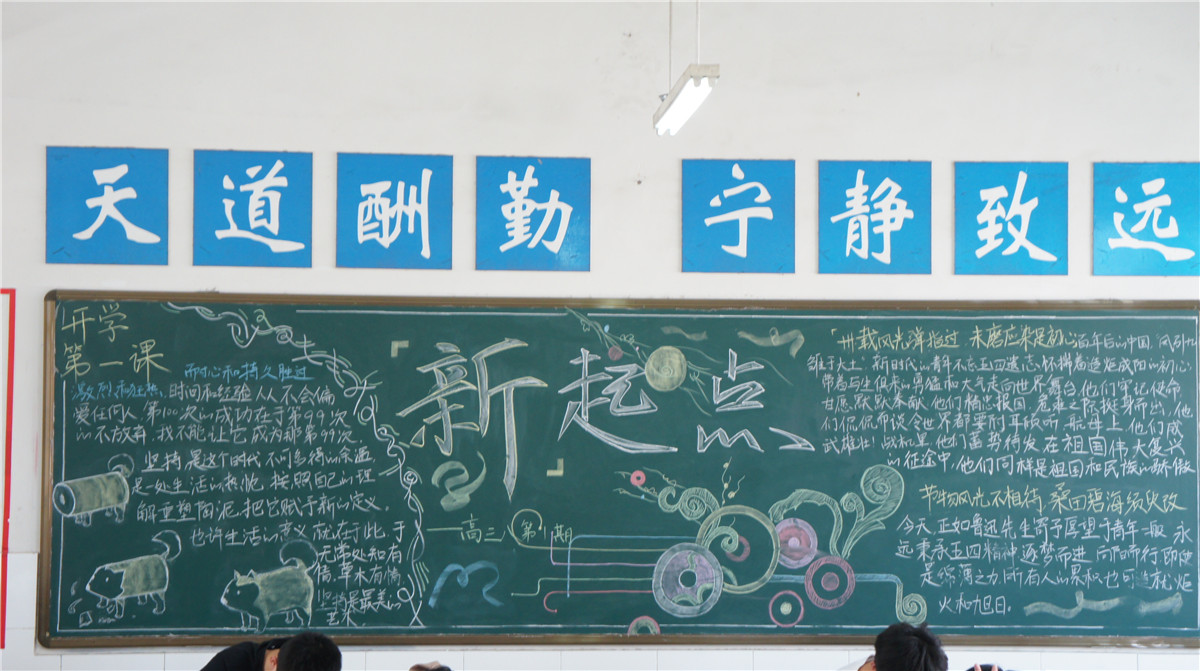 天道酬勤 宁静致远
开学
第一课
耐心和持久胜过
激烈和狂热,时间和经验人人不会偏
爱任何人,第100次的成功在于第99次
的不放弃,我不能让它成为那第99次.
坚持是这个时代不可多得的
是一处生活的热忱,按照自己的理
解重塑陶泥,把它赋予新的定义.
也许生活的意义就在于此,于
无常处知有
情,草木有情
坚持是最美的
艺术.
新起点
高三 第 期
卅载风光弹指过 未磨应果是初心
百年后的中国,风别九
雏于大土.新时代的青年不忘五四遗志,怀揣着造炬成阳的初心
带着与生俱来的勇猛和大气走向世界舞台,他们牢记使命
甘愿默默奉献,他们精忠报国,危难之际挺身而出,他
们侃侃而谈令世界都要附耳聆听.航母上他们成
武雄壮!战机里他们蓄势待发在祖国伟大复兴
的征途中,他们同样是祖国和民族的骄傲
节物风光不相待,桑田碧海须臾改
今天,正如鲁迅先生寄予厚望于青年一般,永
远秉承五四精神逐梦而进,向阳而行,即使
是绵薄之力,所有人的累积也可造就炬
火和旭日.